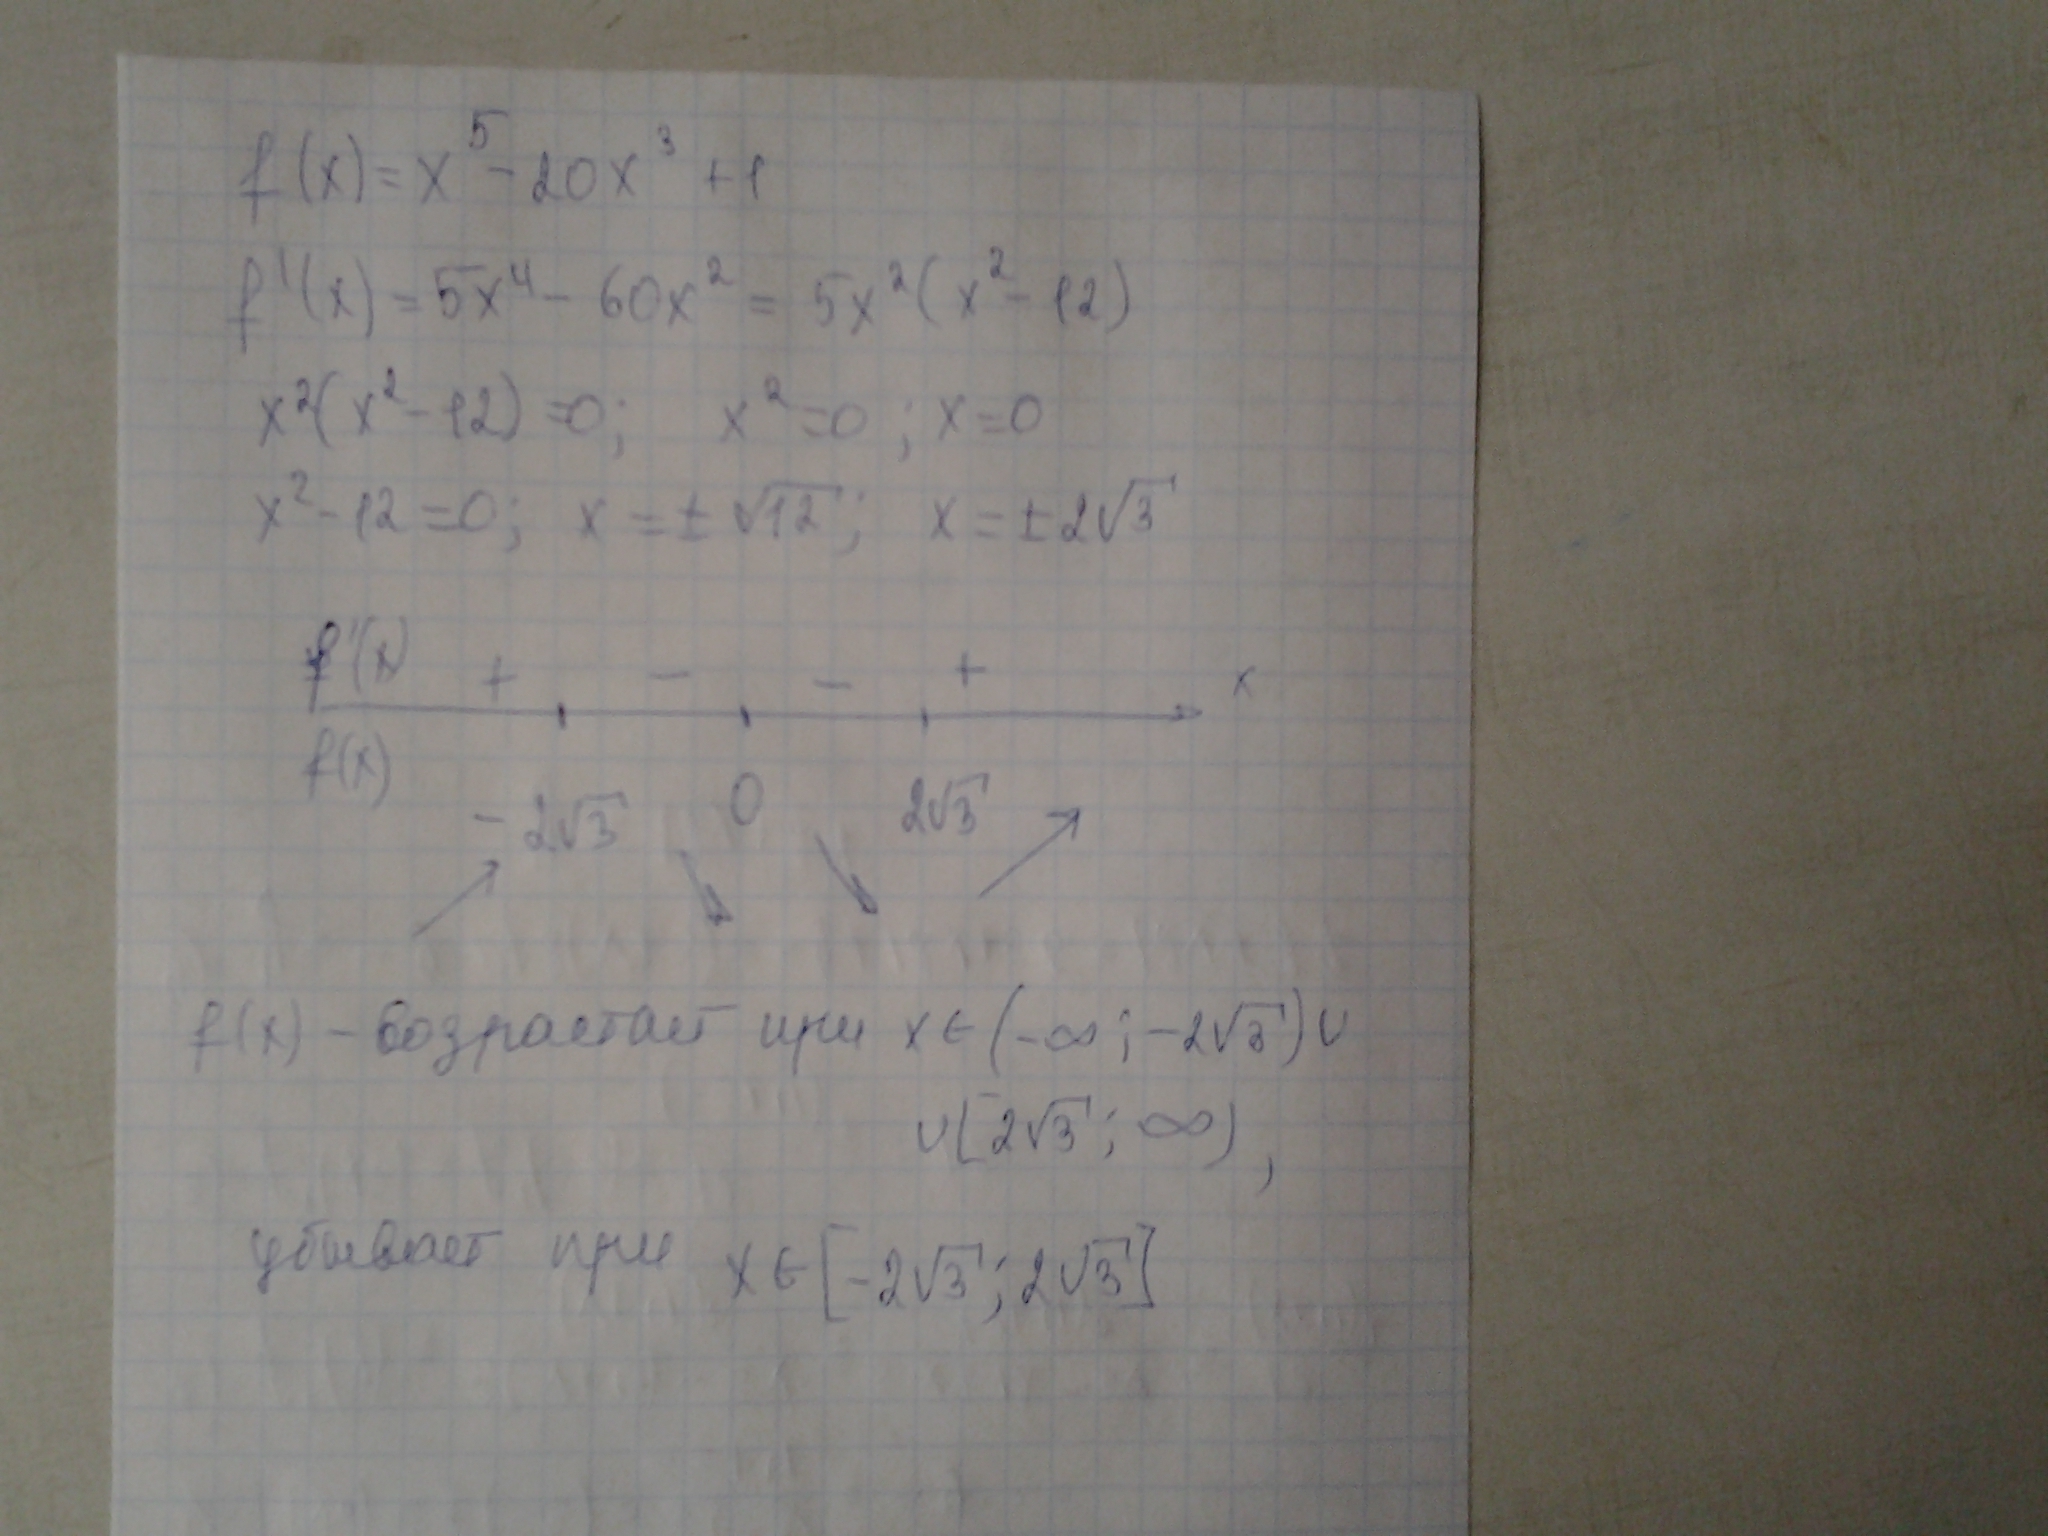 f(x)=x⁵-20x³+1
f'(x)=5x⁴-60x²=5x²(x²-12)
x²(x²-12)=0; x²=0; x=0
x²-12=0; x=±√12; x=±2√3
f'(x) + - - + x
f(x)
-2√3 0 2√3
f(x) - возрастает при x∈(-∞;-2√3)∪
∪[2√3;∞),
убывает при x∈[-2√3;2√3]